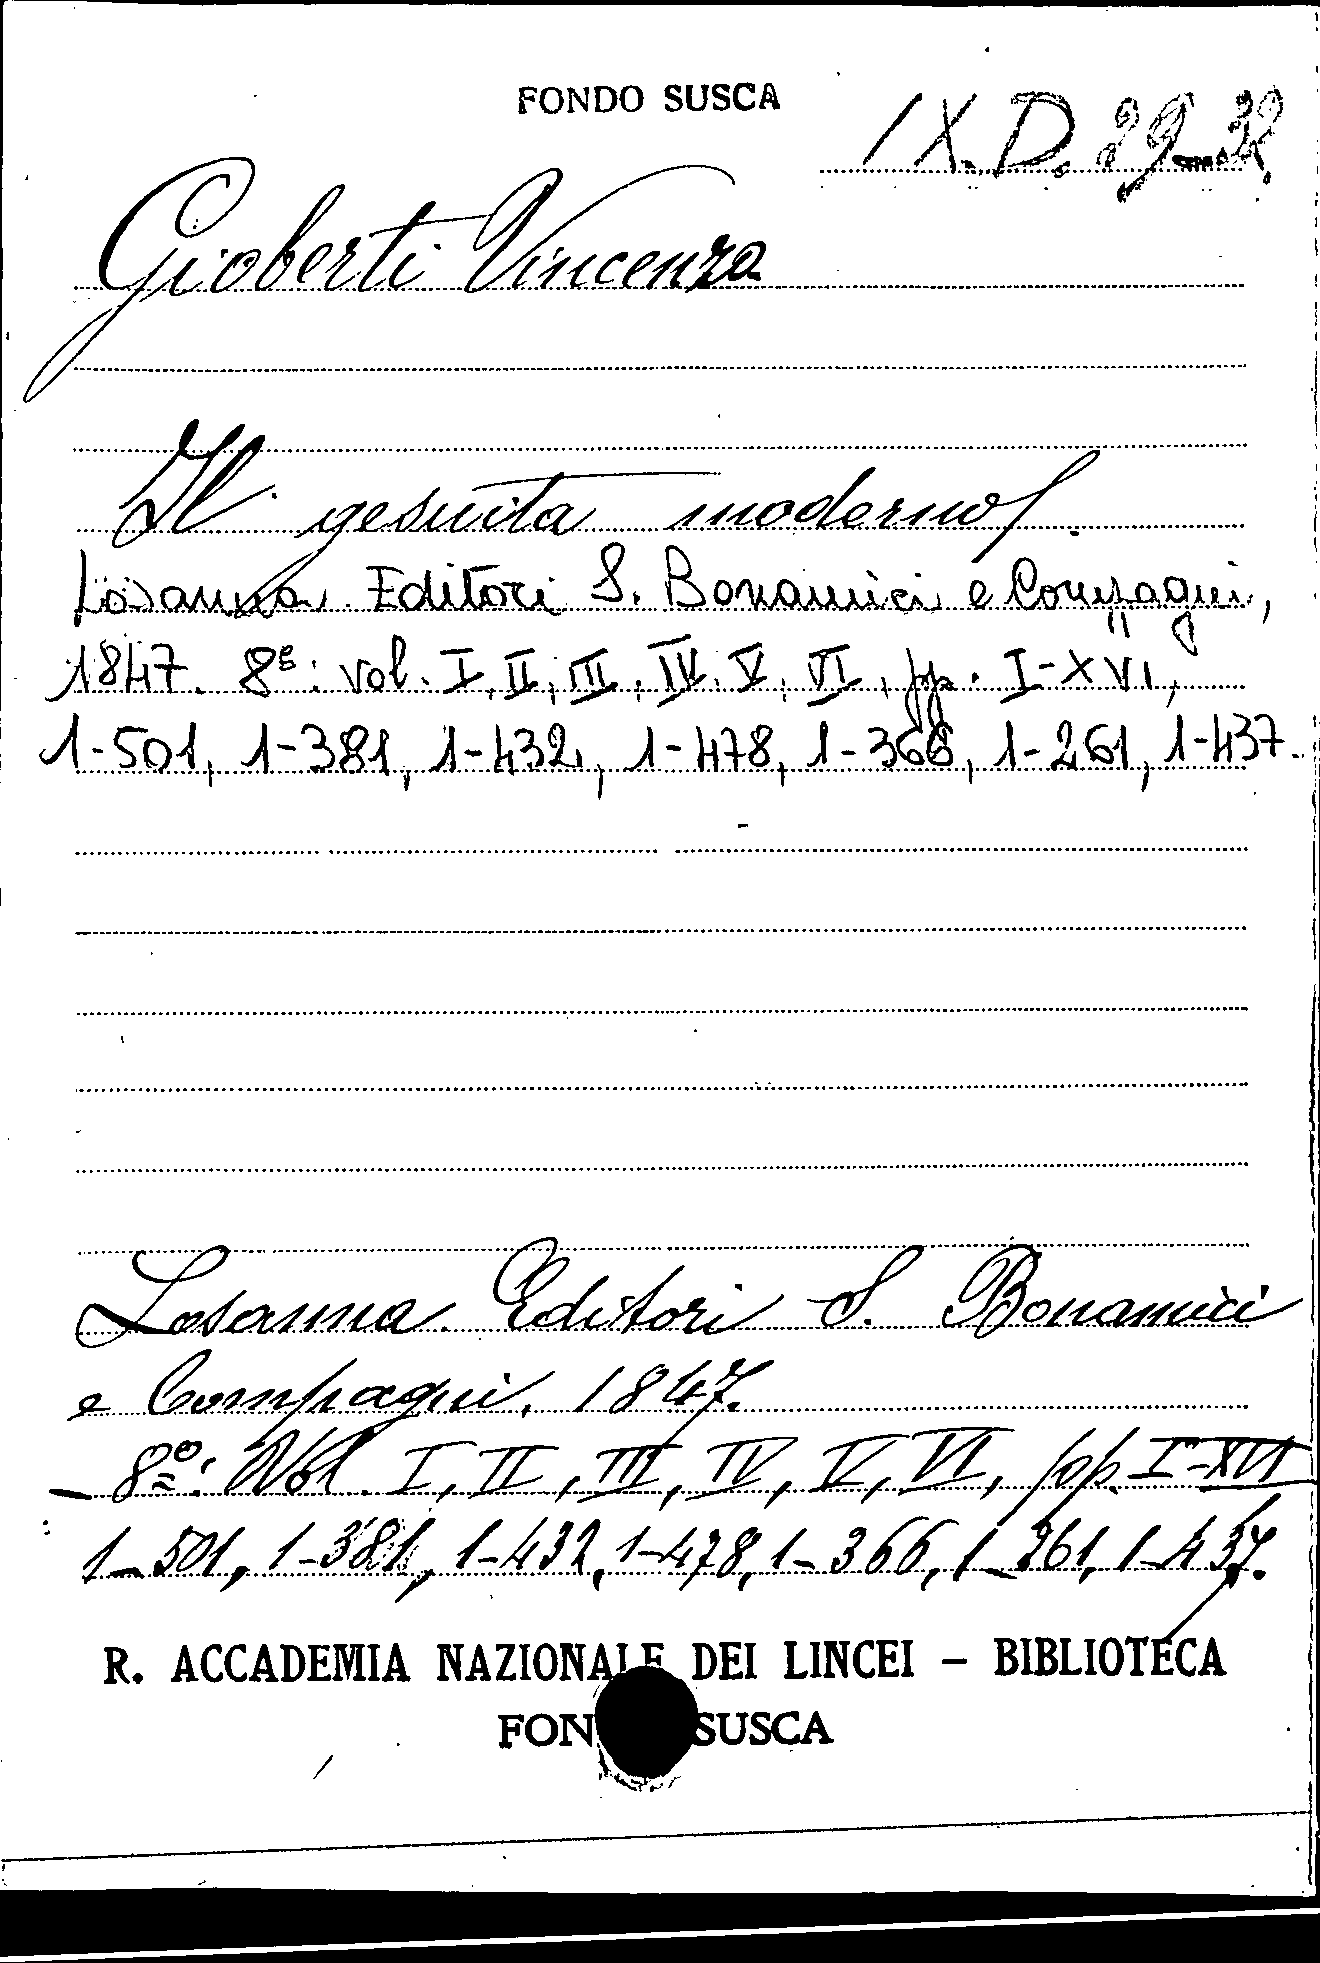 FONDO SUSCA
IX.D.29-32
Gioberti Vincenzo
Il gesuita moderno.
Losanna. Editori S. Bonamici e Compagni,
1847. 8º: vol. I, II, III, IV, V, VI, pp. I-XVI,
1-501, 1-381, 1-432, 1-478, 1-366, 1-261, 1-437.
Losanna. Editori S. Bonamici
e Compagni, 1847.
8º: Vol. I, II, III, IV, V, VI, pp. I-XVI
1-501, 1-381, 1-432, 1-478, 1-366, 1-261, 1-437.
R. ACCADEMIA NAZIONALE DEI LINCEI - BIBLIOTECA
FON SUSCA